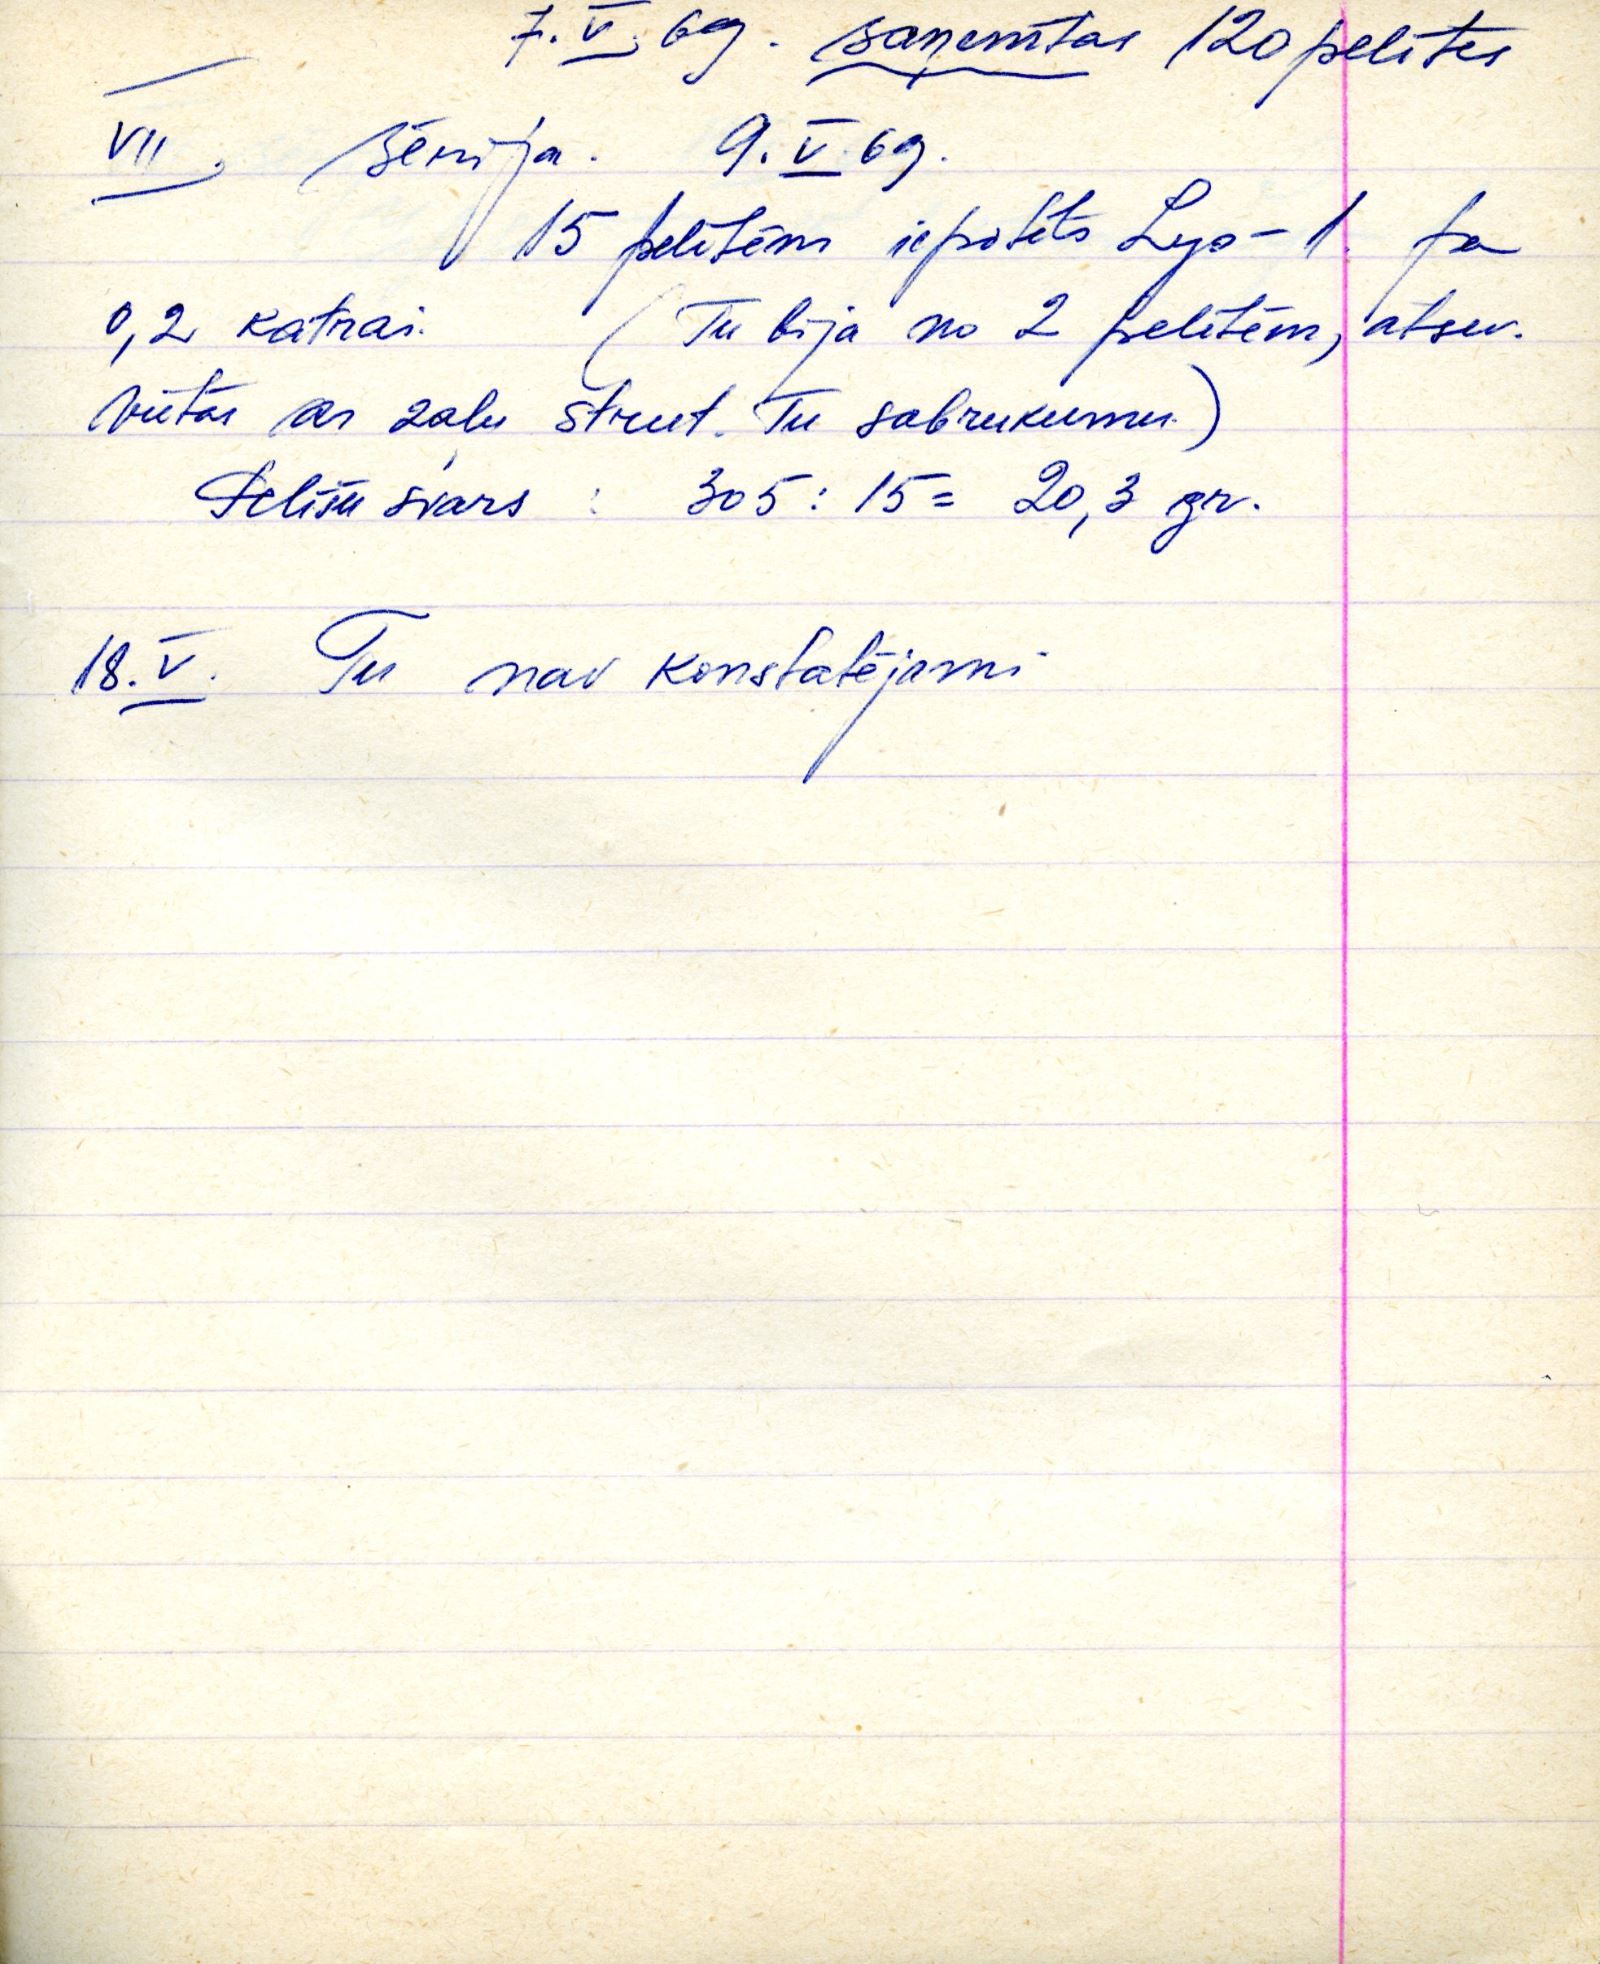 7.V.69. saņemtas 120 pelītes
VII sērija. 9.V.69.
15 pelītēm iepotēts Lyo-1. pa
0,2 katrai. (Tu bija no 2 pelītēm, atsev.
vietās ar zaļu strut. Tu sabrukumu.)
Pelīšu svars : 305 : 15 = 20,3 gr.
18.V. Tu nav konstatējami